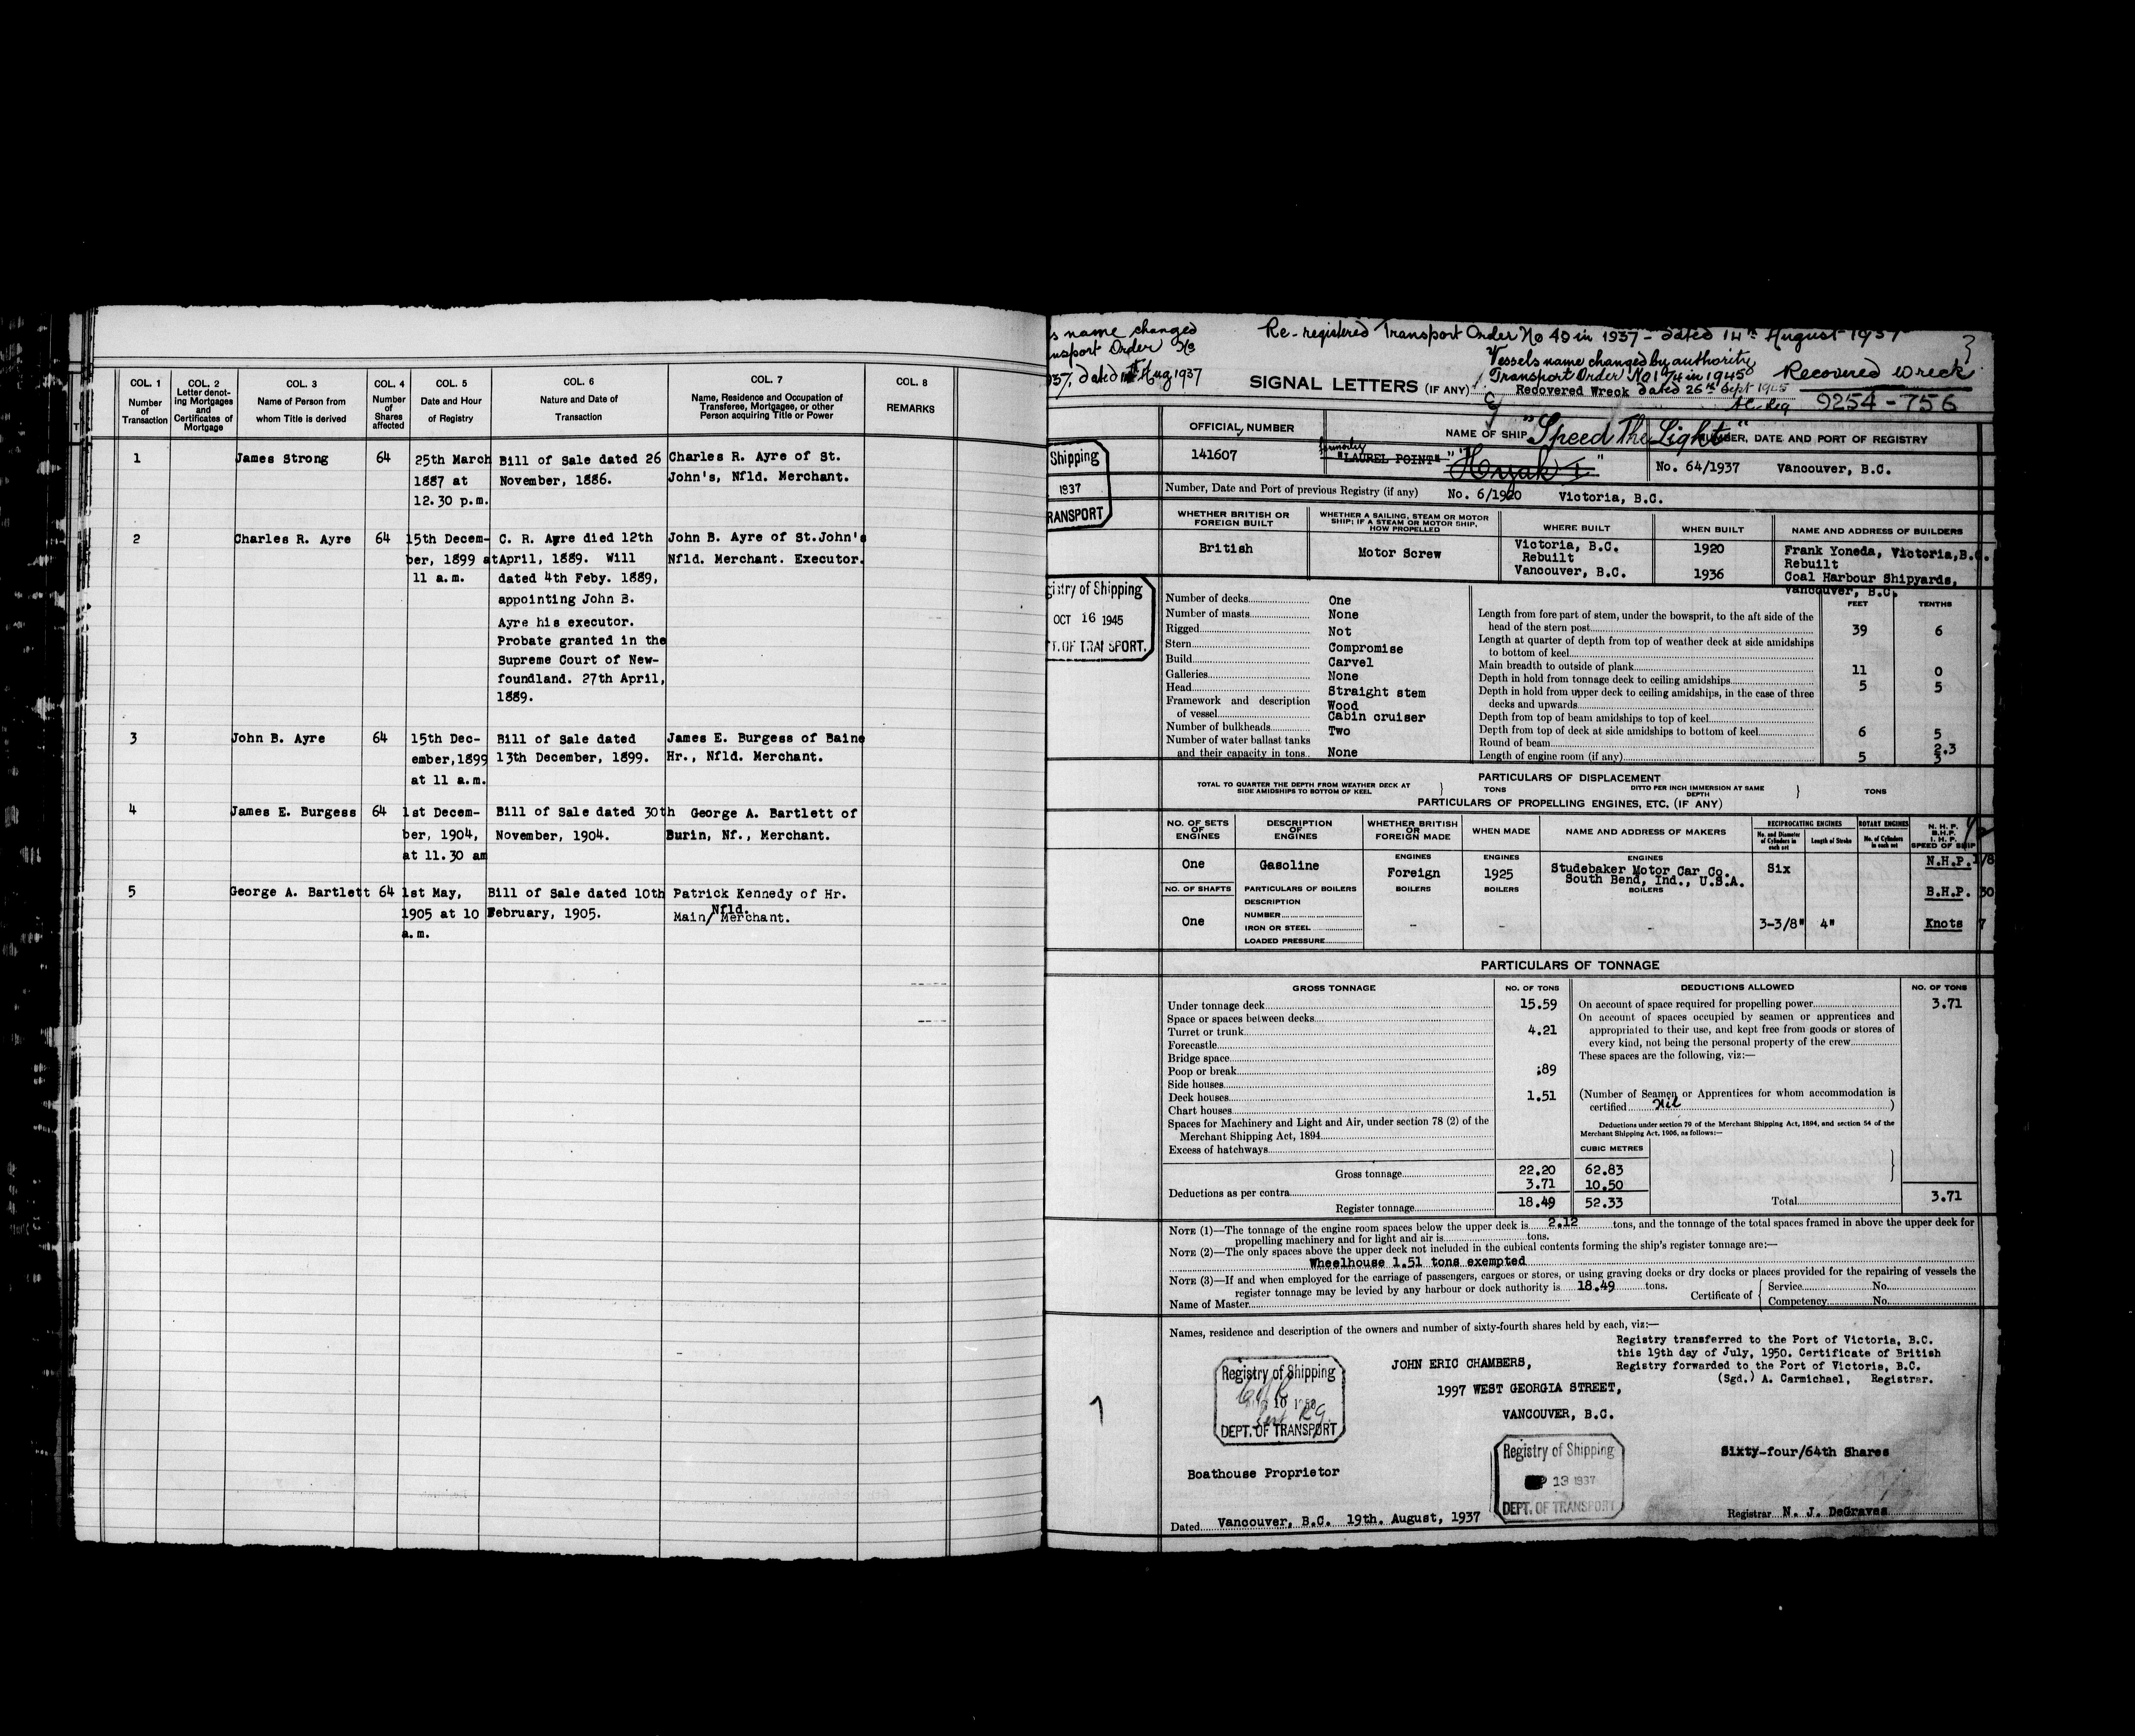 COL. 1
Number
of
Transaction
COL. 2
Letter denot-
ing Mortgages
and
Certificates of
Mortgage
COL. 3
Name of Person from
whom Title is derived
COL. 4
Number
of
Shares
affected
COL. 5
Date and Hour
of Registry
COL. 6
Nature and Date of
Transaction
COL. 7
Name, Residence and Occupation of
Transferee, Mortgagee, or other
Person acquiring Title or Power
COL. 8
REMARKS
1
James Strong
64
25th March
1887 at
12.30 p.m.
Bill of Sale dated 26
November, 1886.
Charles R. Ayre of St.
John's, Nfld. Merchant.
2
Charles R. Ayre
64
15th Decem-
ber, 1899 at
11 a.m.
C. R. Ayre died 12th
April, 1889. Will
dated 4th Feby. 1889,
appointing John B.
Ayre his executor.
Probate granted in the
Supreme Court of New-
foundland. 27th April,
1889.
John B. Ayre of St.John's
Nfld. Merchant. Executor.
3
John B. Ayre
64
15th Dec-
ember,1899
at 11 a.m.
Bill of Sale dated
13th December, 1899.
James E. Burgess of Baine
Hr., Nfld. Merchant.
4
James E. Burgess
64
1st Decem-
ber, 1904,
at 11.30 am
Bill of Sale dated 30th
November, 1904.
George A. Bartlett of
Burin, Nf., Merchant.
5
George A. Bartlett
64
1st May,
1905 at 10
a.m.
Bill of Sale dated 10th
February, 1905.
Patrick Kennedy of Hr.
Main/ Nfld. Merchant.
s name changed
nsport Order No
37, dated Aug 1937
Re-registered Transport Order No 49 in 1937 - dated 14th August 1937
Vessels name changed by authority
Transport Order No 174 in 1945
dated 26th Sept 1945
Recovered Wreck
SIGNAL LETTERS (IF ANY) Recovered Wreck
9254-756
OFFICIAL NUMBER
141607
NAME OF SHIP
"Speed The Light"
formerly
"LAUREL POINT"
"Hyak I"
NUMBER, DATE AND PORT OF REGISTRY
No. 64/1937 Vancouver, B.C.
Shipping
1937
RANSPORT
Number, Date and Port of previous Registry (if any) No. 6/1920 Victoria, B.C.
WHETHER BRITISH OR
FOREIGN BUILT
British
WHETHER A SAILING, STEAM OR MOTOR
SHIP; IF A STEAM OR MOTOR SHIP,
HOW PROPELLED
Motor Screw
WHERE BUILT
Victoria, B.C.
Rebuilt
Vancouver, B.C.
WHEN BUILT
1920
1936
NAME AND ADDRESS OF BUILDERS
Frank Yoneda, Victoria,B.C.
Rebuilt
Coal Harbour Shipyards,
Vancouver, B.C.
gistry of Shipping
OCT 16 1945
T. OF TRANSPORT.
Number of decks One
Number of masts None
Rigged Not
Stern Compromise
Build Carvel
Galleries None
Head Straight stem
Framework and description
of vessel Wood
Cabin cruiser
Number of bulkheads Two
Number of water ballast tanks
and their capacity in tons None
FEET TENTHS
Length from fore part of stem, under the bowsprit, to the aft side of the
head of the stern post 39 6
Length at quarter of depth from top of weather deck at side amidships
to bottom of keel
Main breadth to outside of plank 11 0
Depth in hold from tonnage deck to ceiling amidships 5 5
Depth in hold from upper deck to ceiling amidships, in the case of three
decks and upwards
Depth from top of beam amidships to top of keel
Depth from top of deck at side amidships to bottom of keel 6 5
Round of beam 2.3
Length of engine room (if any) 5 3
PARTICULARS OF DISPLACEMENT
TOTAL TO QUARTER THE DEPTH FROM WEATHER DECK AT
SIDE AMIDSHIPS TO BOTTOM OF KEEL
TONS
DITTO PER INCH IMMERSION AT SAME
DEPTH
TONS
PARTICULARS OF PROPELLING ENGINES, ETC. (IF ANY)
NO. OF SETS
OF
ENGINES
One
DESCRIPTION
OF
ENGINES
Gasoline
WHETHER BRITISH
OR
FOREIGN MADE
ENGINES
Foreign
WHEN MADE
ENGINES
1925
NAME AND ADDRESS OF MAKERS
ENGINES
Studebaker Motor Car Co.
South Bend, Ind., U.S.A.
RECIPROCATING ENGINES
No. and Diameter
of Cylinders in
each set
Length of Stroke
ROTARY ENGINES
No. of Cylinders
in each set
N. H. P.
B.H.P.
I. H. P.
SPEED OF SHIP
Six
N.H.P.
B.H.P. 30
NO. OF SHAFTS
One
PARTICULARS OF BOILERS
DESCRIPTION
NUMBER
IRON OR STEEL
LOADED PRESSURE
BOILERS
-
BOILERS
-
BOILERS
-
3-3/8" 4"
Knots 7
PARTICULARS OF TONNAGE
GROSS TONNAGE
NO. OF TONS
Under tonnage deck 15.59
Space or spaces between decks
Turret or trunk 4.21
Forecastle
Bridge space
Poop or break .89
Side houses
Deck houses 1.51
Chart houses
Spaces for Machinery and Light and Air, under section 78 (2) of the
Merchant Shipping Act, 1894
Excess of hatchways
Gross tonnage 22.20 62.83
Deductions as per contra 3.71 10.50
Register tonnage 18.49 52.33
DEDUCTIONS ALLOWED
NO. OF TONS
On account of space required for propelling power 3.71
On account of spaces occupied by seamen or apprentices and
appropriated to their use, and kept free from goods or stores of
every kind, not being the personal property of the crew
These spaces are the following, viz:—
(Number of Seamen or Apprentices for whom accommodation is
certified Nil )
Deductions under section 79 of the Merchant Shipping Act, 1894, and section 54 of the
Merchant Shipping Act, 1906, as follows:—
CUBIC METRES
Total 3.71
NOTE (1)—The tonnage of the engine room spaces below the upper deck is 2.12 tons, and the tonnage of the total spaces framed in above the upper deck for
propelling machinery and for light and air is tons.
NOTE (2)—The only spaces above the upper deck not included in the cubical contents forming the ship's register tonnage are:—
Wheelhouse 1.51 tons exempted
NOTE (3)—If and when employed for the carriage of passengers, cargoes or stores, or using graving docks or dry docks or places provided for the repairing of vessels the
register tonnage may be levied by any harbour or dock authority is 18.49 tons.
Name of Master
Certificate of
Service No.
Competency No.
Names, residence and description of the owners and number of sixty-fourth shares held by each, viz:—
Registry transferred to the Port of Victoria, B.C.
this 19th day of July, 1950. Certificate of British
Registry forwarded to the Port of Victoria, B.C.
(Sgd.) A. Carmichael, Registrar.
JOHN ERIC CHAMBERS,
1997 WEST GEORGIA STREET,
VANCOUVER, B.C.
Registry of Shipping
10 1950
DEPT. OF TRANSPORT
1
Sixty-four/64th Shares
Boathouse Proprietor
Registry of Shipping
13 1937
DEPT. OF TRANSPORT
Dated Vancouver, B.C. 19th. August, 1937
Registrar N. J. DeGraves